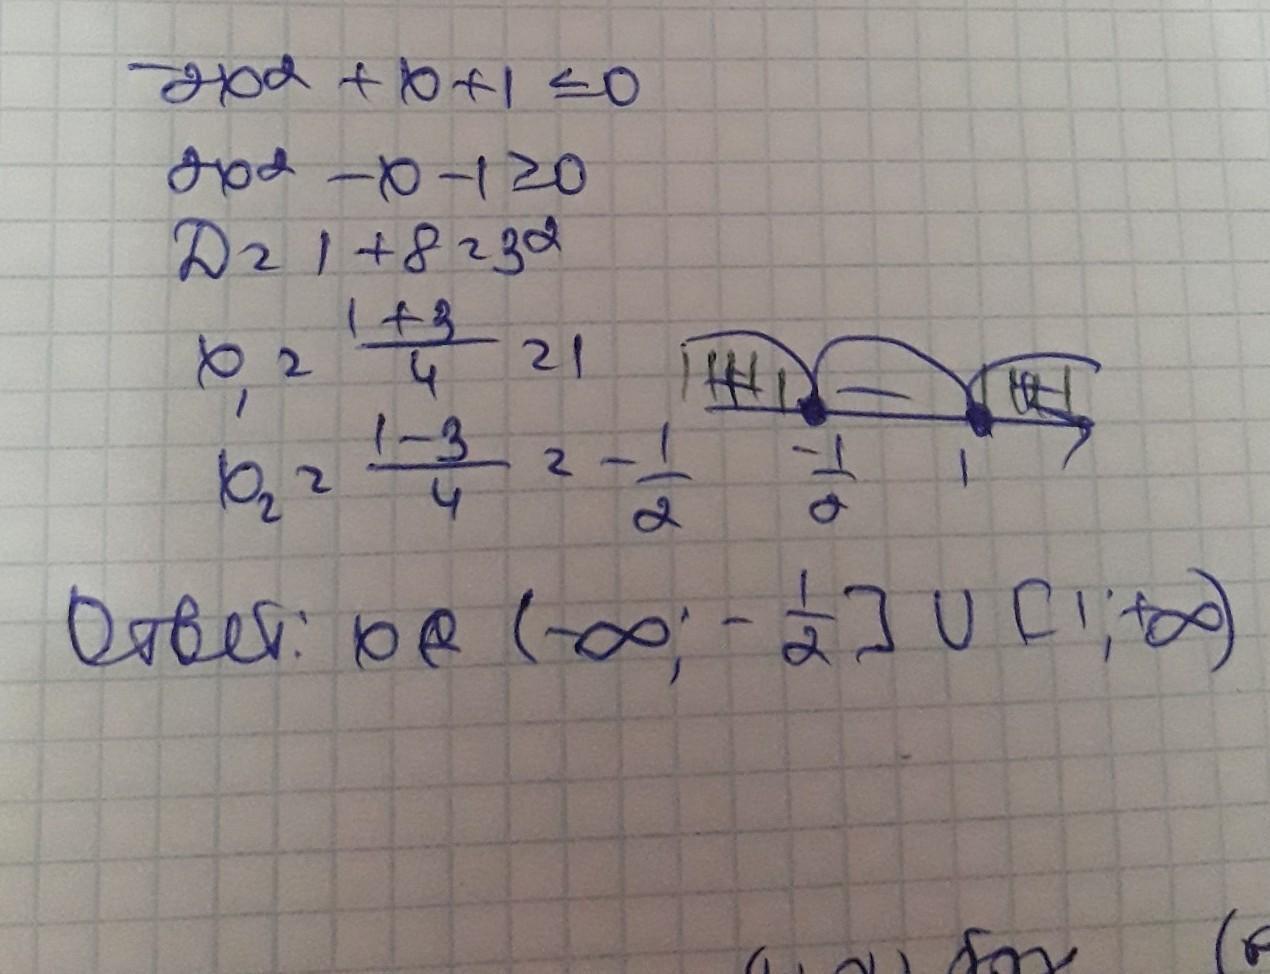 -2x² + x + 1 ≤ 0
2x² - x - 1 ≥ 0
D = 1 + 8 = 3²
x₁ = (1+3)/4 = 1
x₂ = (1-3)/4 = -1/2
-1/2 1
Ответ: x ∈ (-∞; -1/2] ∪ [1; +∞)